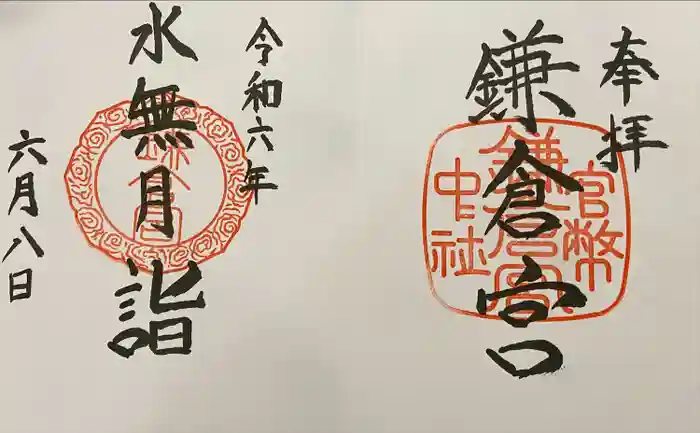 奉拝
鎌倉宮
官幣
鎌倉宮
中社
令和六年
水無月詣
鎌倉宮
六月八日